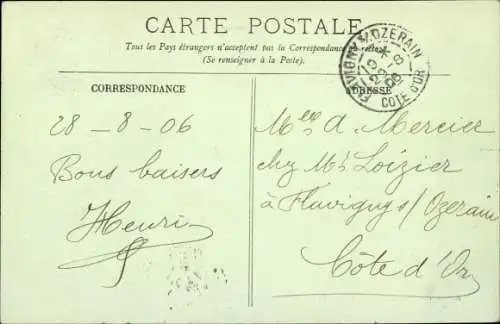 CARTE POSTALE
Tous les Pays étrangers n'acceptent pas la Correspondance au recto.
(Se renseigner à la Poste).
FLAVIGNY S. OZERAIN
COTE D'OR
CORRESPONDANCE
ADRESSE
28-8-06
Bons baisers
Henri
Melles d. Mercier
chez Mr Loizier
à Flavigny s/ Ozerain
Côte d'Or